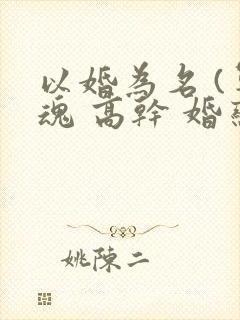 以婚為名（
魂 高幹 婚
姚陳二